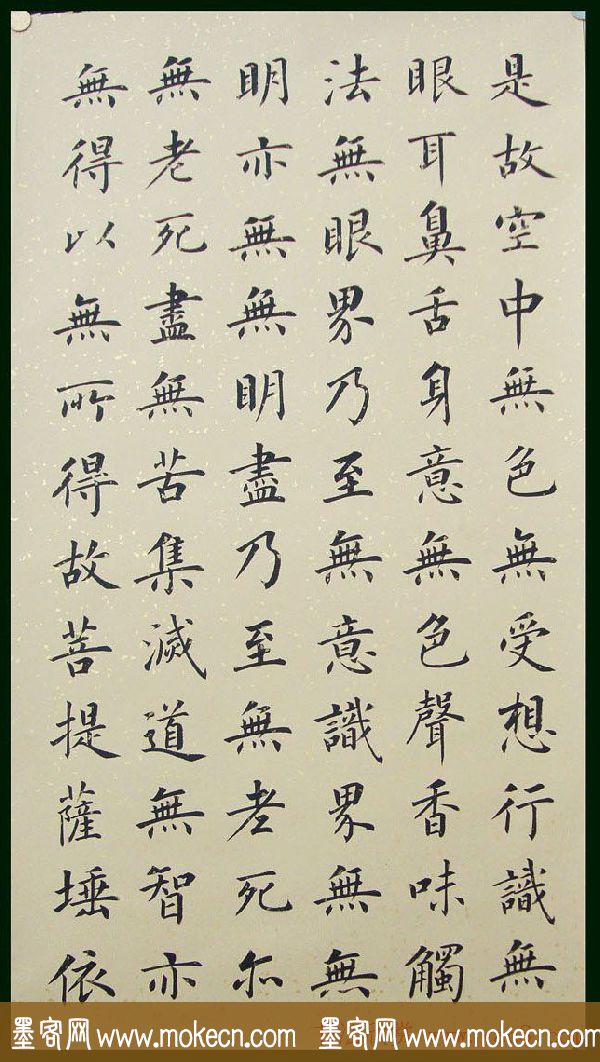 是故空中無色無受想行識無
眼耳鼻舌身意無色聲香味觸
法無眼界乃至無意識界無無
明亦無無明盡乃至無老死亦
無老死盡無苦集滅道無智亦
無得以無所得故菩提薩埵依
墨客网 www.mokecn.com 墨客网 www.mokecn.com